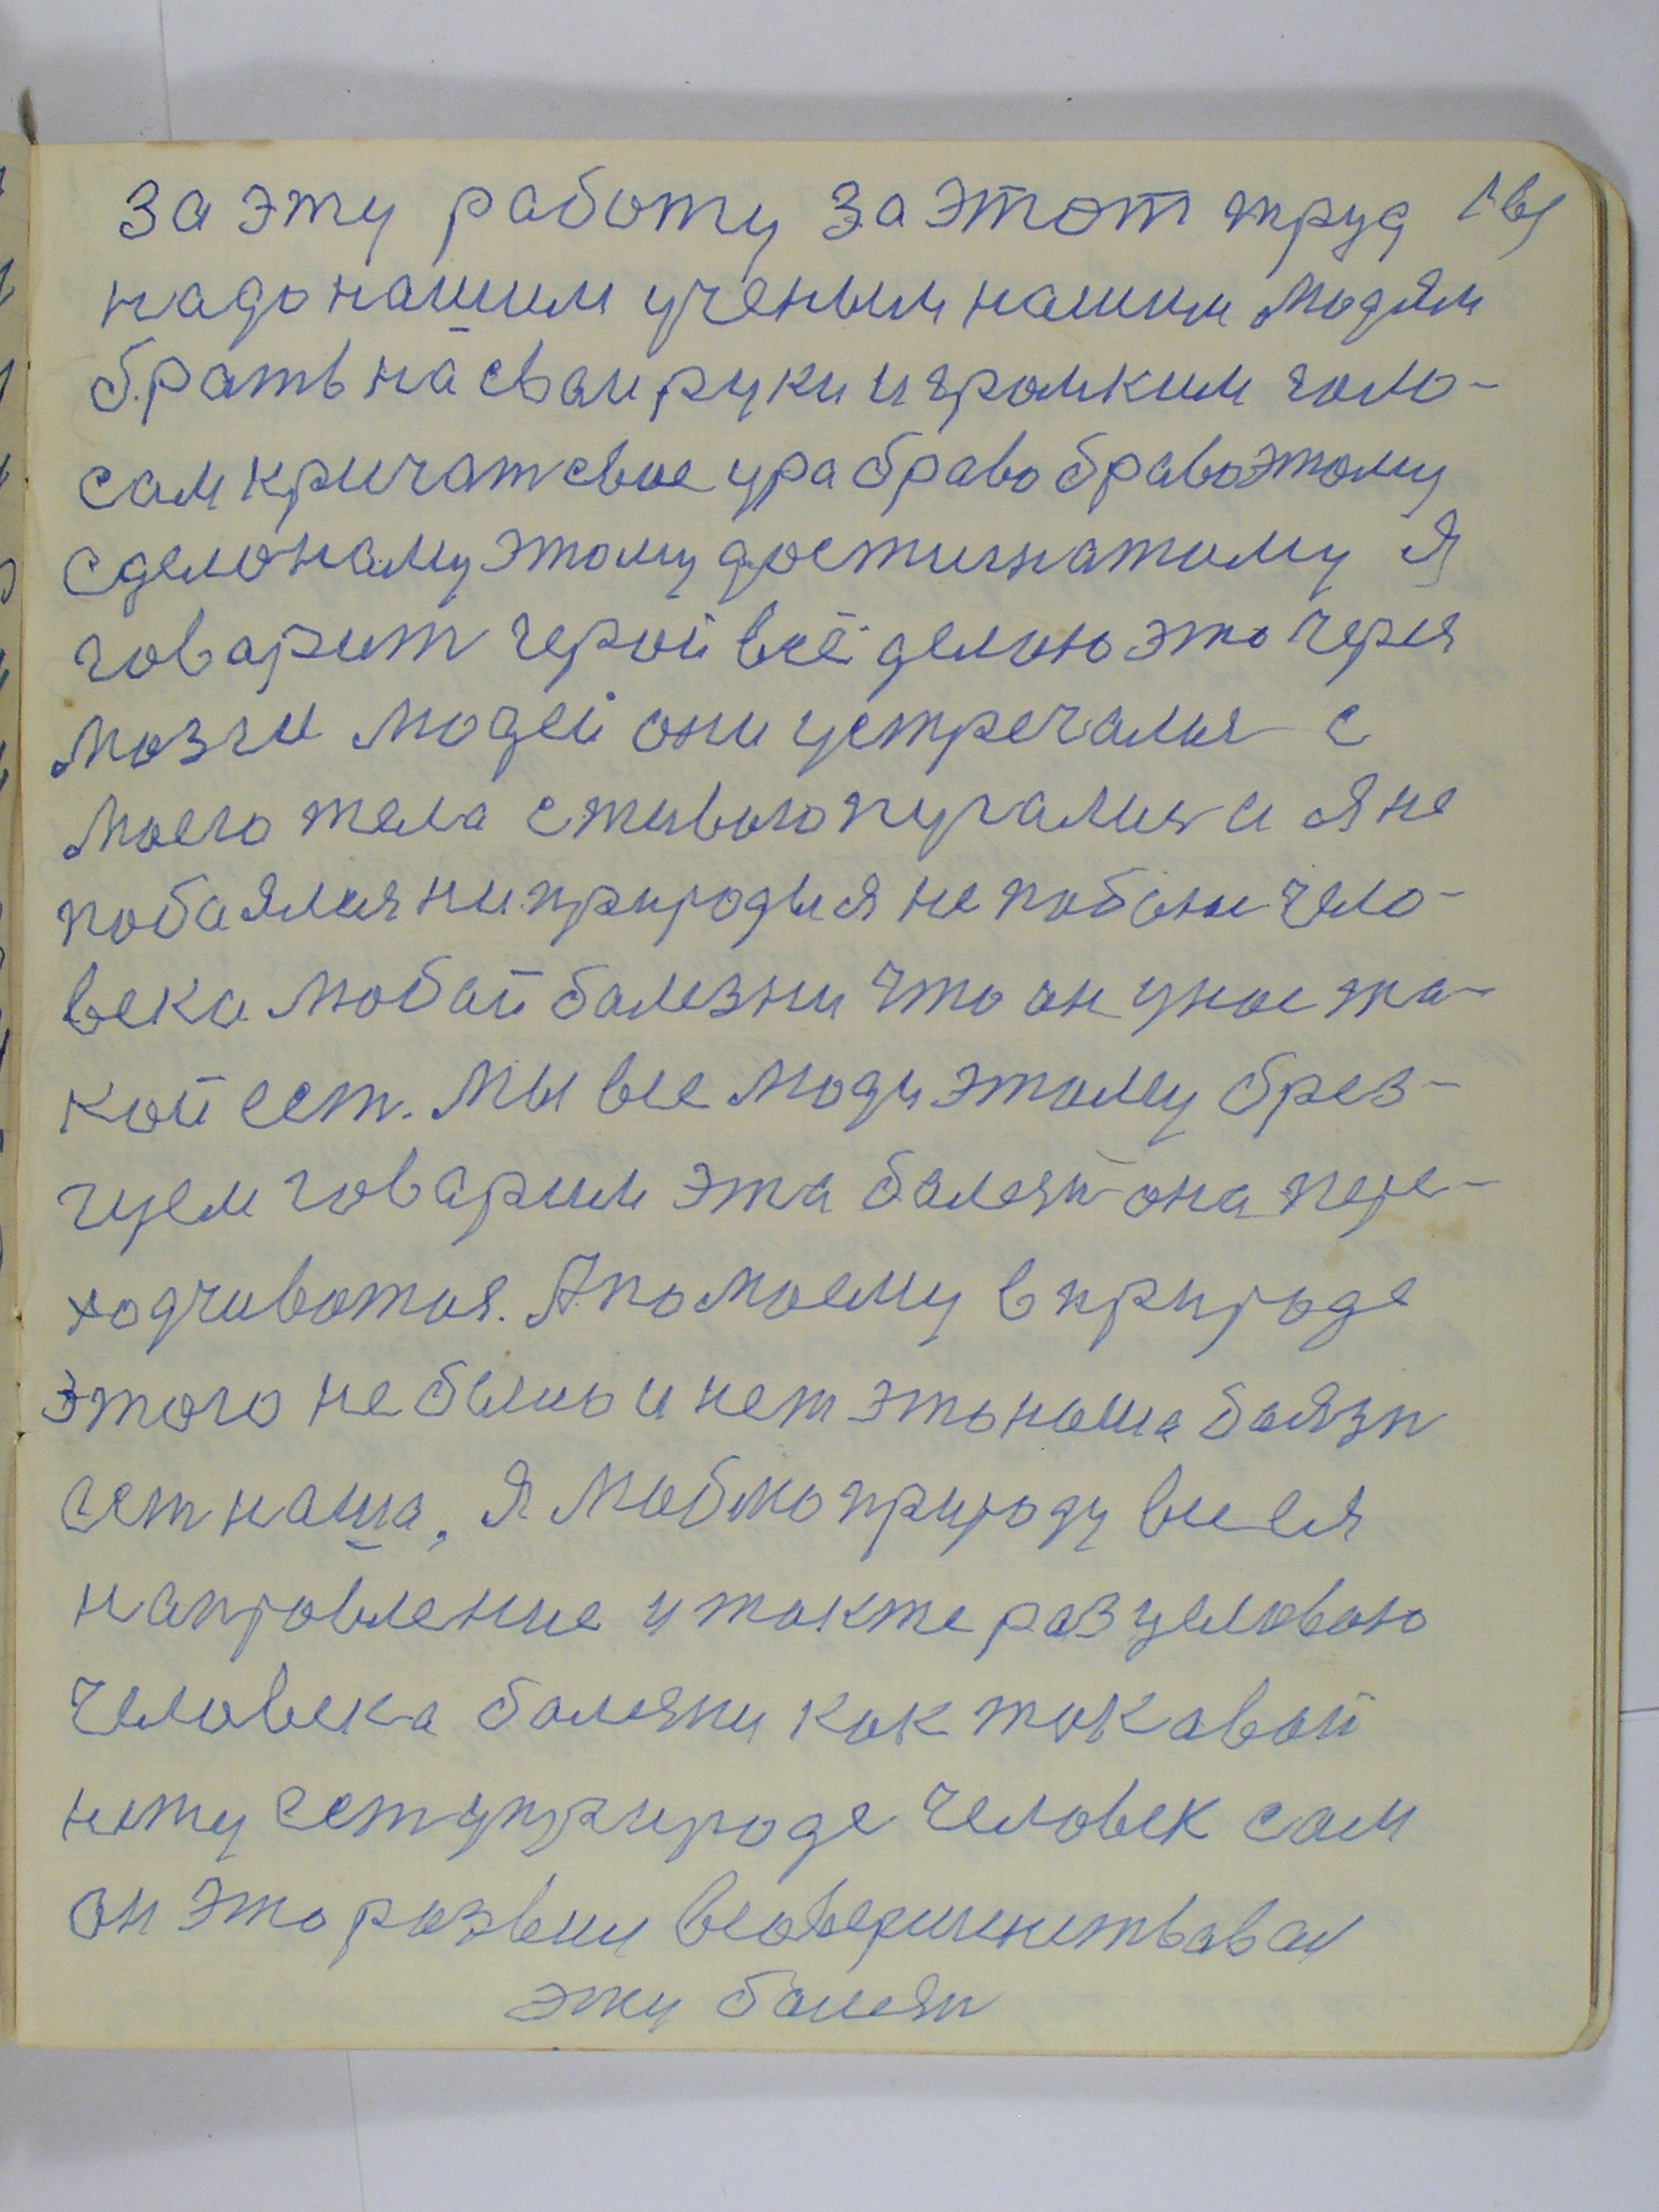 за эту работу за этот труд
надо нашим ученым нашим людям
брать на сваи руки и громким голо-
сам кричат свое ура браво браво этому
сделонаму этому достигнатому Я
говарит герой всё делою это через
мозги людей они устречалися с
моего тела с живого пугалися и я не
побаялся ни природы я не побою чело-
века любай болезни что он уное та-
кой ест. Мы все люди этому брез-
гуем говарим эта болезн она пере-
хадчивотся. А по моему в природе
этого не было и нет это ноша боязн
ест наша, Я люблю природу вне ея
напровление и токже розцеловою
человека болезни как токавой
нету ест у природе человек сам
он это розвил
эту болезн